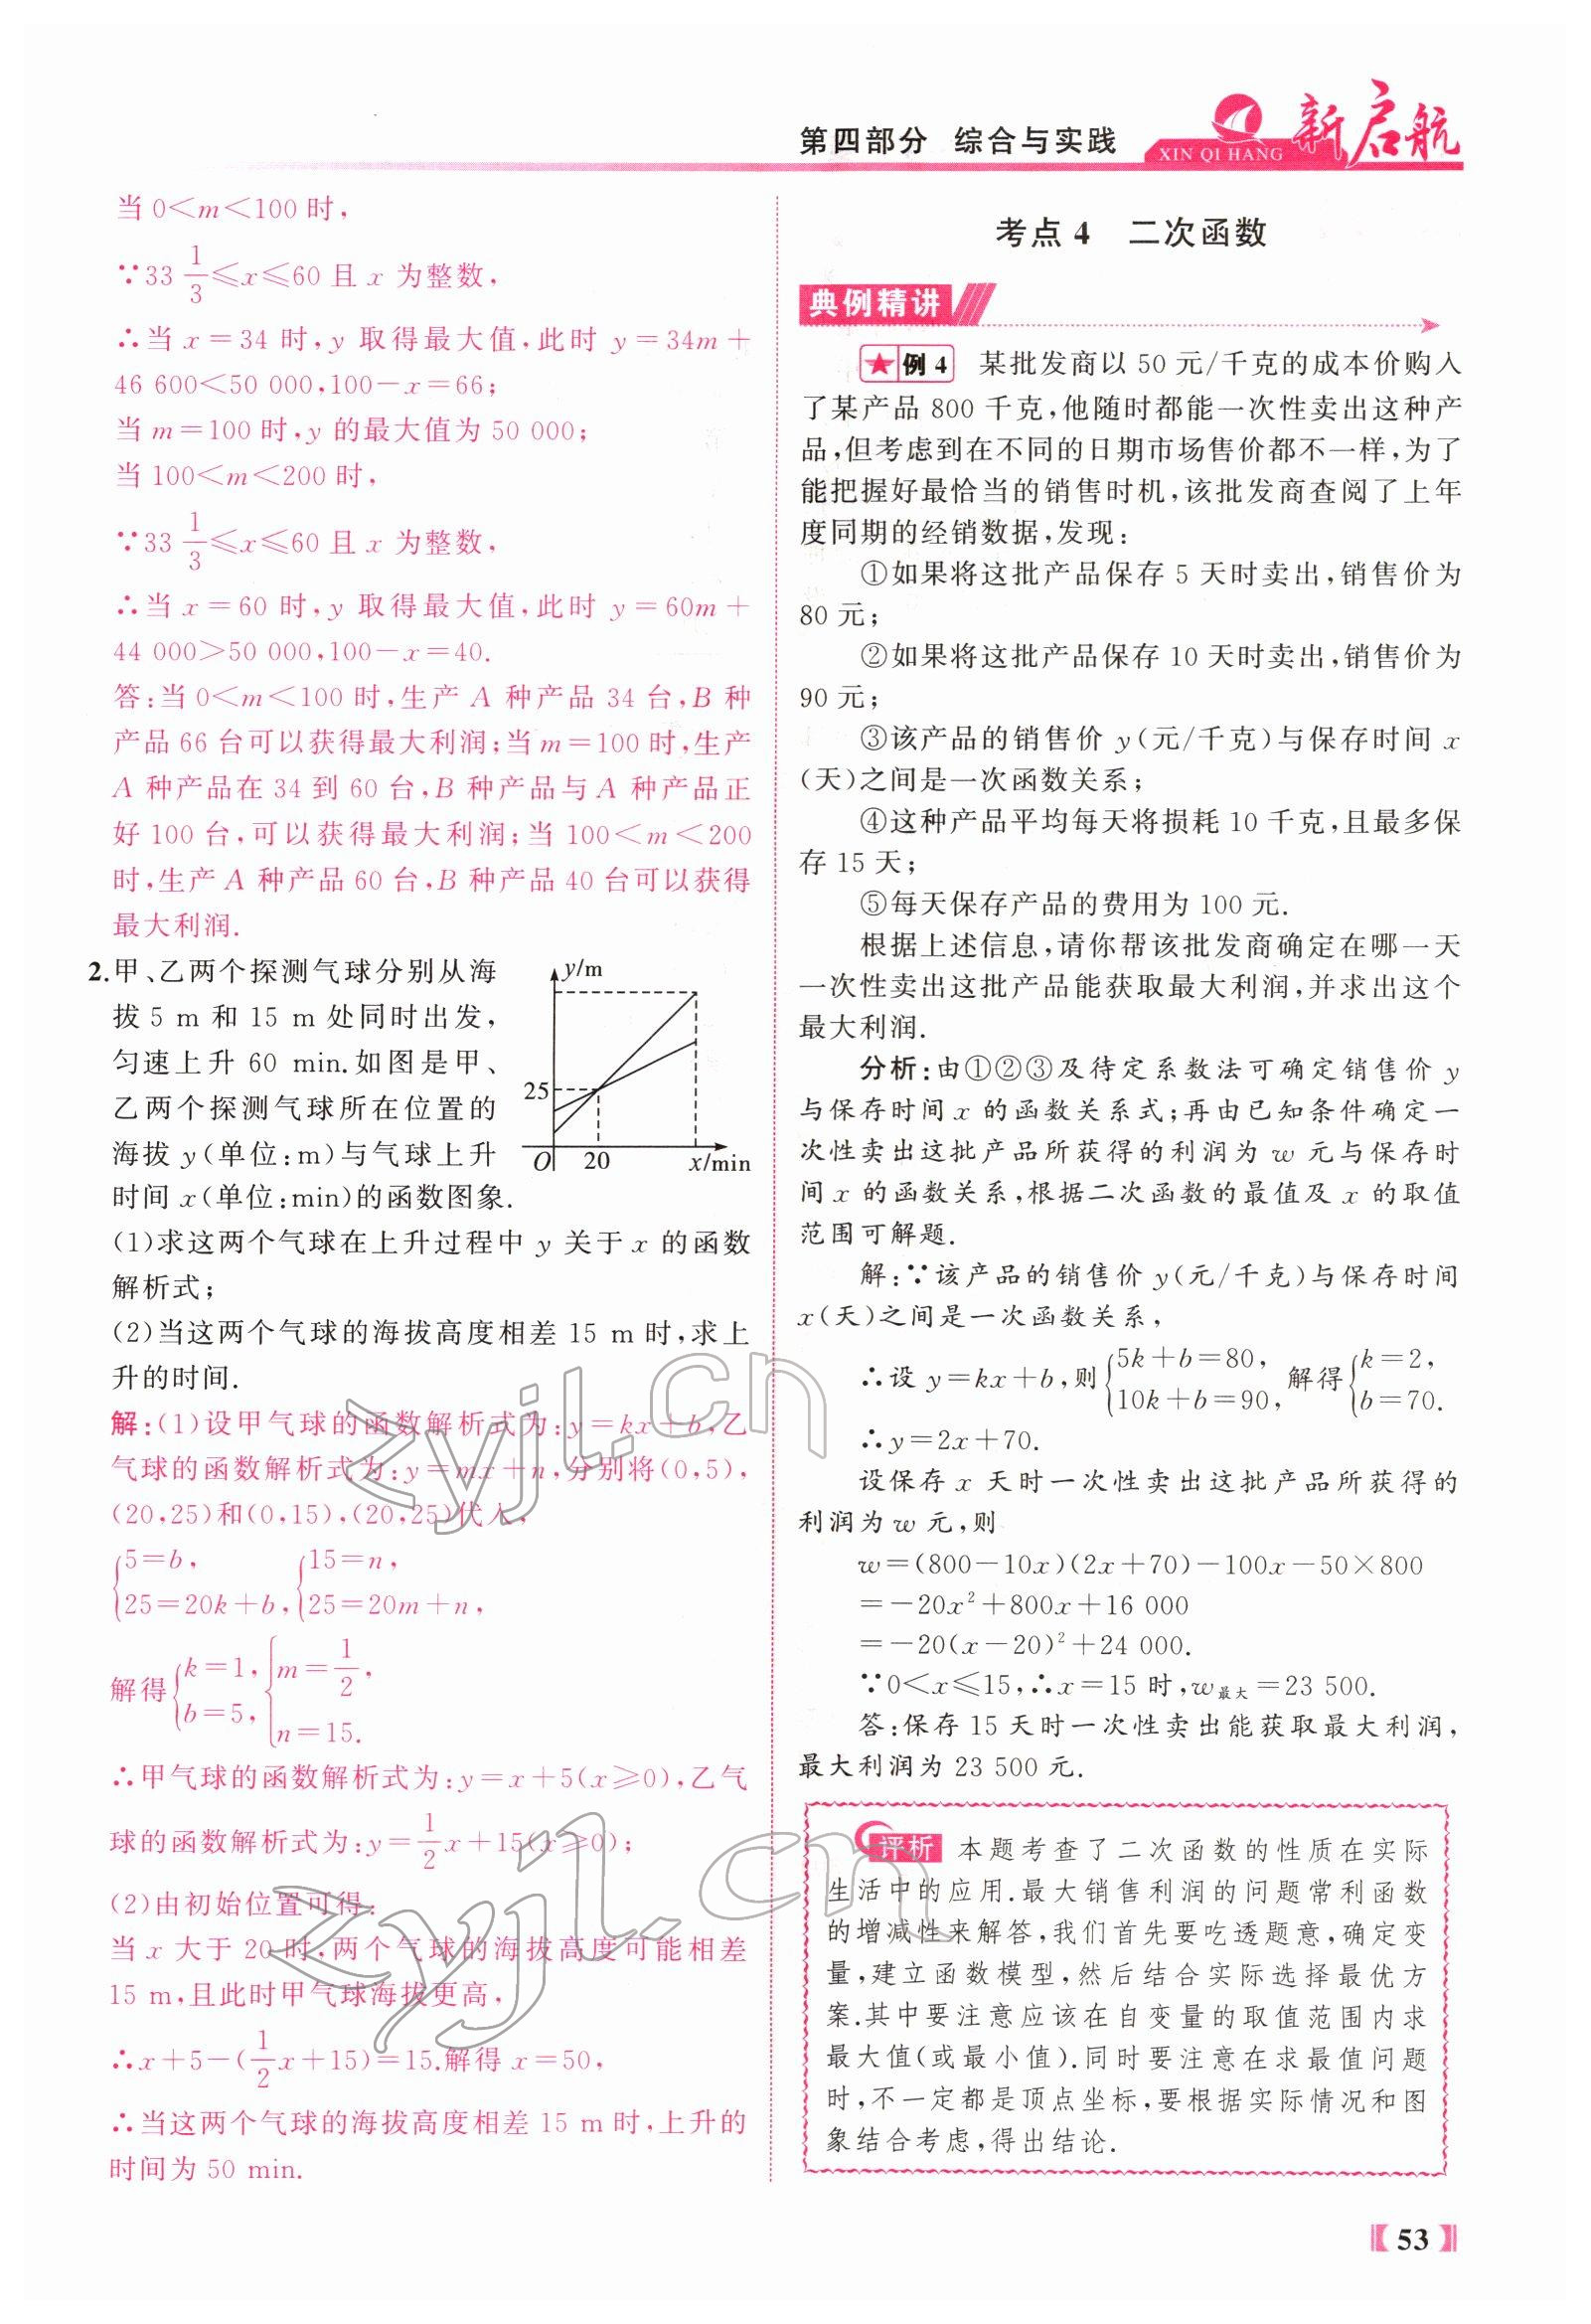 第四部分 综合与实践
XIN QI HANG
新启航
当 0<m<100 时,
∵33 1/3≤x≤60 且 x 为整数,
∴当 x=34 时,y 取得最大值,此时 y=34m+
46 600<50 000,100-x=66;
当 m=100 时,y 的最大值为 50 000;
当 100<m<200 时,
∵33 1/3≤x≤60 且 x 为整数,
∴当 x=60 时,y 取得最大值,此时 y=60m+
44 000>50 000,100-x=40.
答:当 0<m<100 时,生产 A 种产品 34 台,B 种
产品 66 台可以获得最大利润;当 m=100 时,生产
A 种产品在 34 到 60 台,B 种产品与 A 种产品正
好 100 台,可以获得最大利润;当 100<m<200
时,生产 A 种产品 60 台,B 种产品 40 台可以获得
最大利润.
2.甲、乙两个探测气球分别从海
拔 5 m 和 15 m 处同时出发,
匀速上升 60 min.如图是甲、
乙两个探测气球所在位置的
海拔 y(单位:m)与气球上升
时间 x(单位:min)的函数图象.
y/m
25
O 20 x/min
(1)求这两个气球在上升过程中 y 关于 x 的函数
解析式;
(2)当这两个气球的海拔高度相差 15 m 时,求上
升的时间.
解:(1)设甲气球的函数解析式为:y=kx+b,乙
气球的函数解析式为:y=mx+n,分别将(0,5),
(20,25)和(0,15),(20,25)代入,
{5=b, {15=n,
25=20k+b, 25=20m+n,
解得{k=1, {m=1/2,
b=5, n=15.
∴甲气球的函数解析式为:y=x+5(x≥0),乙气
球的函数解析式为:y=1/2x+15(x≥0);
(2)由初始位置可得:
当 x 大于 20 时,两个气球的海拔高度可能相差
15 m,且此时甲气球海拔更高,
∴x+5-(1/2x+15)=15.解得 x=50,
∴当这两个气球的海拔高度相差 15 m 时,上升的
时间为 50 min.
考点 4 二次函数
典例精讲
★例 4 某批发商以 50 元/千克的成本价购入
了某产品 800 千克,他随时都能一次性卖出这种产
品,但考虑到在不同的日期市场售价都不一样,为了
能把握好最恰当的销售时机,该批发商查阅了上年
度同期的经销数据,发现:
①如果将这批产品保存 5 天时卖出,销售价为
80 元;
②如果将这批产品保存 10 天时卖出,销售价为
90 元;
③该产品的销售价 y(元/千克)与保存时间 x
(天)之间是一次函数关系;
④这种产品平均每天将损耗 10 千克,且最多保
存 15 天;
⑤每天保存产品的费用为 100 元.
根据上述信息,请你帮该批发商确定在哪一天
一次性卖出这批产品能获取最大利润,并求出这个
最大利润.
分析:由①②③及待定系数法可确定销售价 y
与保存时间 x 的函数关系式;再由已知条件确定一
次性卖出这批产品所获得的利润为 w 元与保存时
间 x 的函数关系,根据二次函数的最值及 x 的取值
范围可解题.
解:∵该产品的销售价 y(元/千克)与保存时间
x(天)之间是一次函数关系,
∴设 y=kx+b,则{5k+b=80, 10k+b=90, 解得{k=2, b=70.
∴y=2x+70.
设保存 x 天时一次性卖出这批产品所获得的
利润为 w 元,则
w=(800-10x)(2x+70)-100x-50×800
=-20x²+800x+16 000
=-20(x-20)²+24 000.
∵0<x≤15,∴x=15 时,w最大=23 500.
答:保存 15 天时一次性卖出能获取最大利润,
最大利润为 23 500 元.
评析 本题考查了二次函数的性质在实际
生活中的应用.最大销售利润的问题常利函数
的增减性来解答,我们首先要吃透题意,确定变
量,建立函数模型,然后结合实际选择最优方
案.其中要注意应该在自变量的取值范围内求
最大值(或最小值).同时要注意在求最值问题
时,不一定都是顶点坐标,要根据实际情况和图
象结合考虑,得出结论.
53
zyjl.cn
zyjl.cn